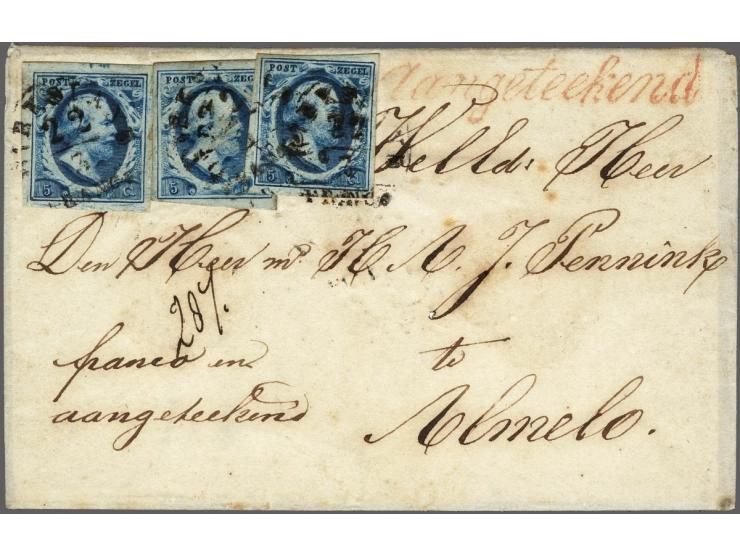 POST ZEGEL POST ZEGEL POST ZEGEL
5 C. 5 C. 5 C.
Aangeteekend
FRANCO
WelEd: Heer
Den Heer mr H. A. J. Pennink
287.
franco en te
aangeteekend Almelo.